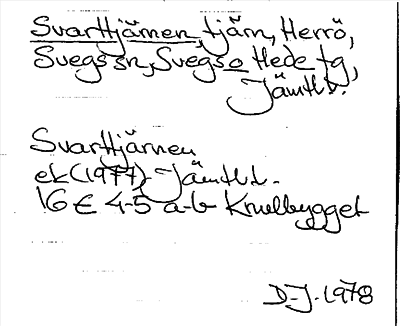 Svarttjärnen, tjärn, Herrö,
Svegs sn, Svegs o Hede tg,
Jämtl l.
Svarttjärnen
ek (1977) Jämtl l.
16 E 4-5 a-b Knullbygget
D-J. 1978